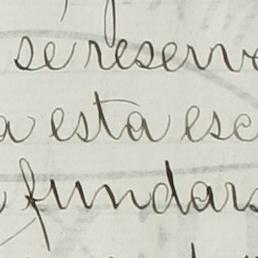 se reserve
a esta esc
fundars